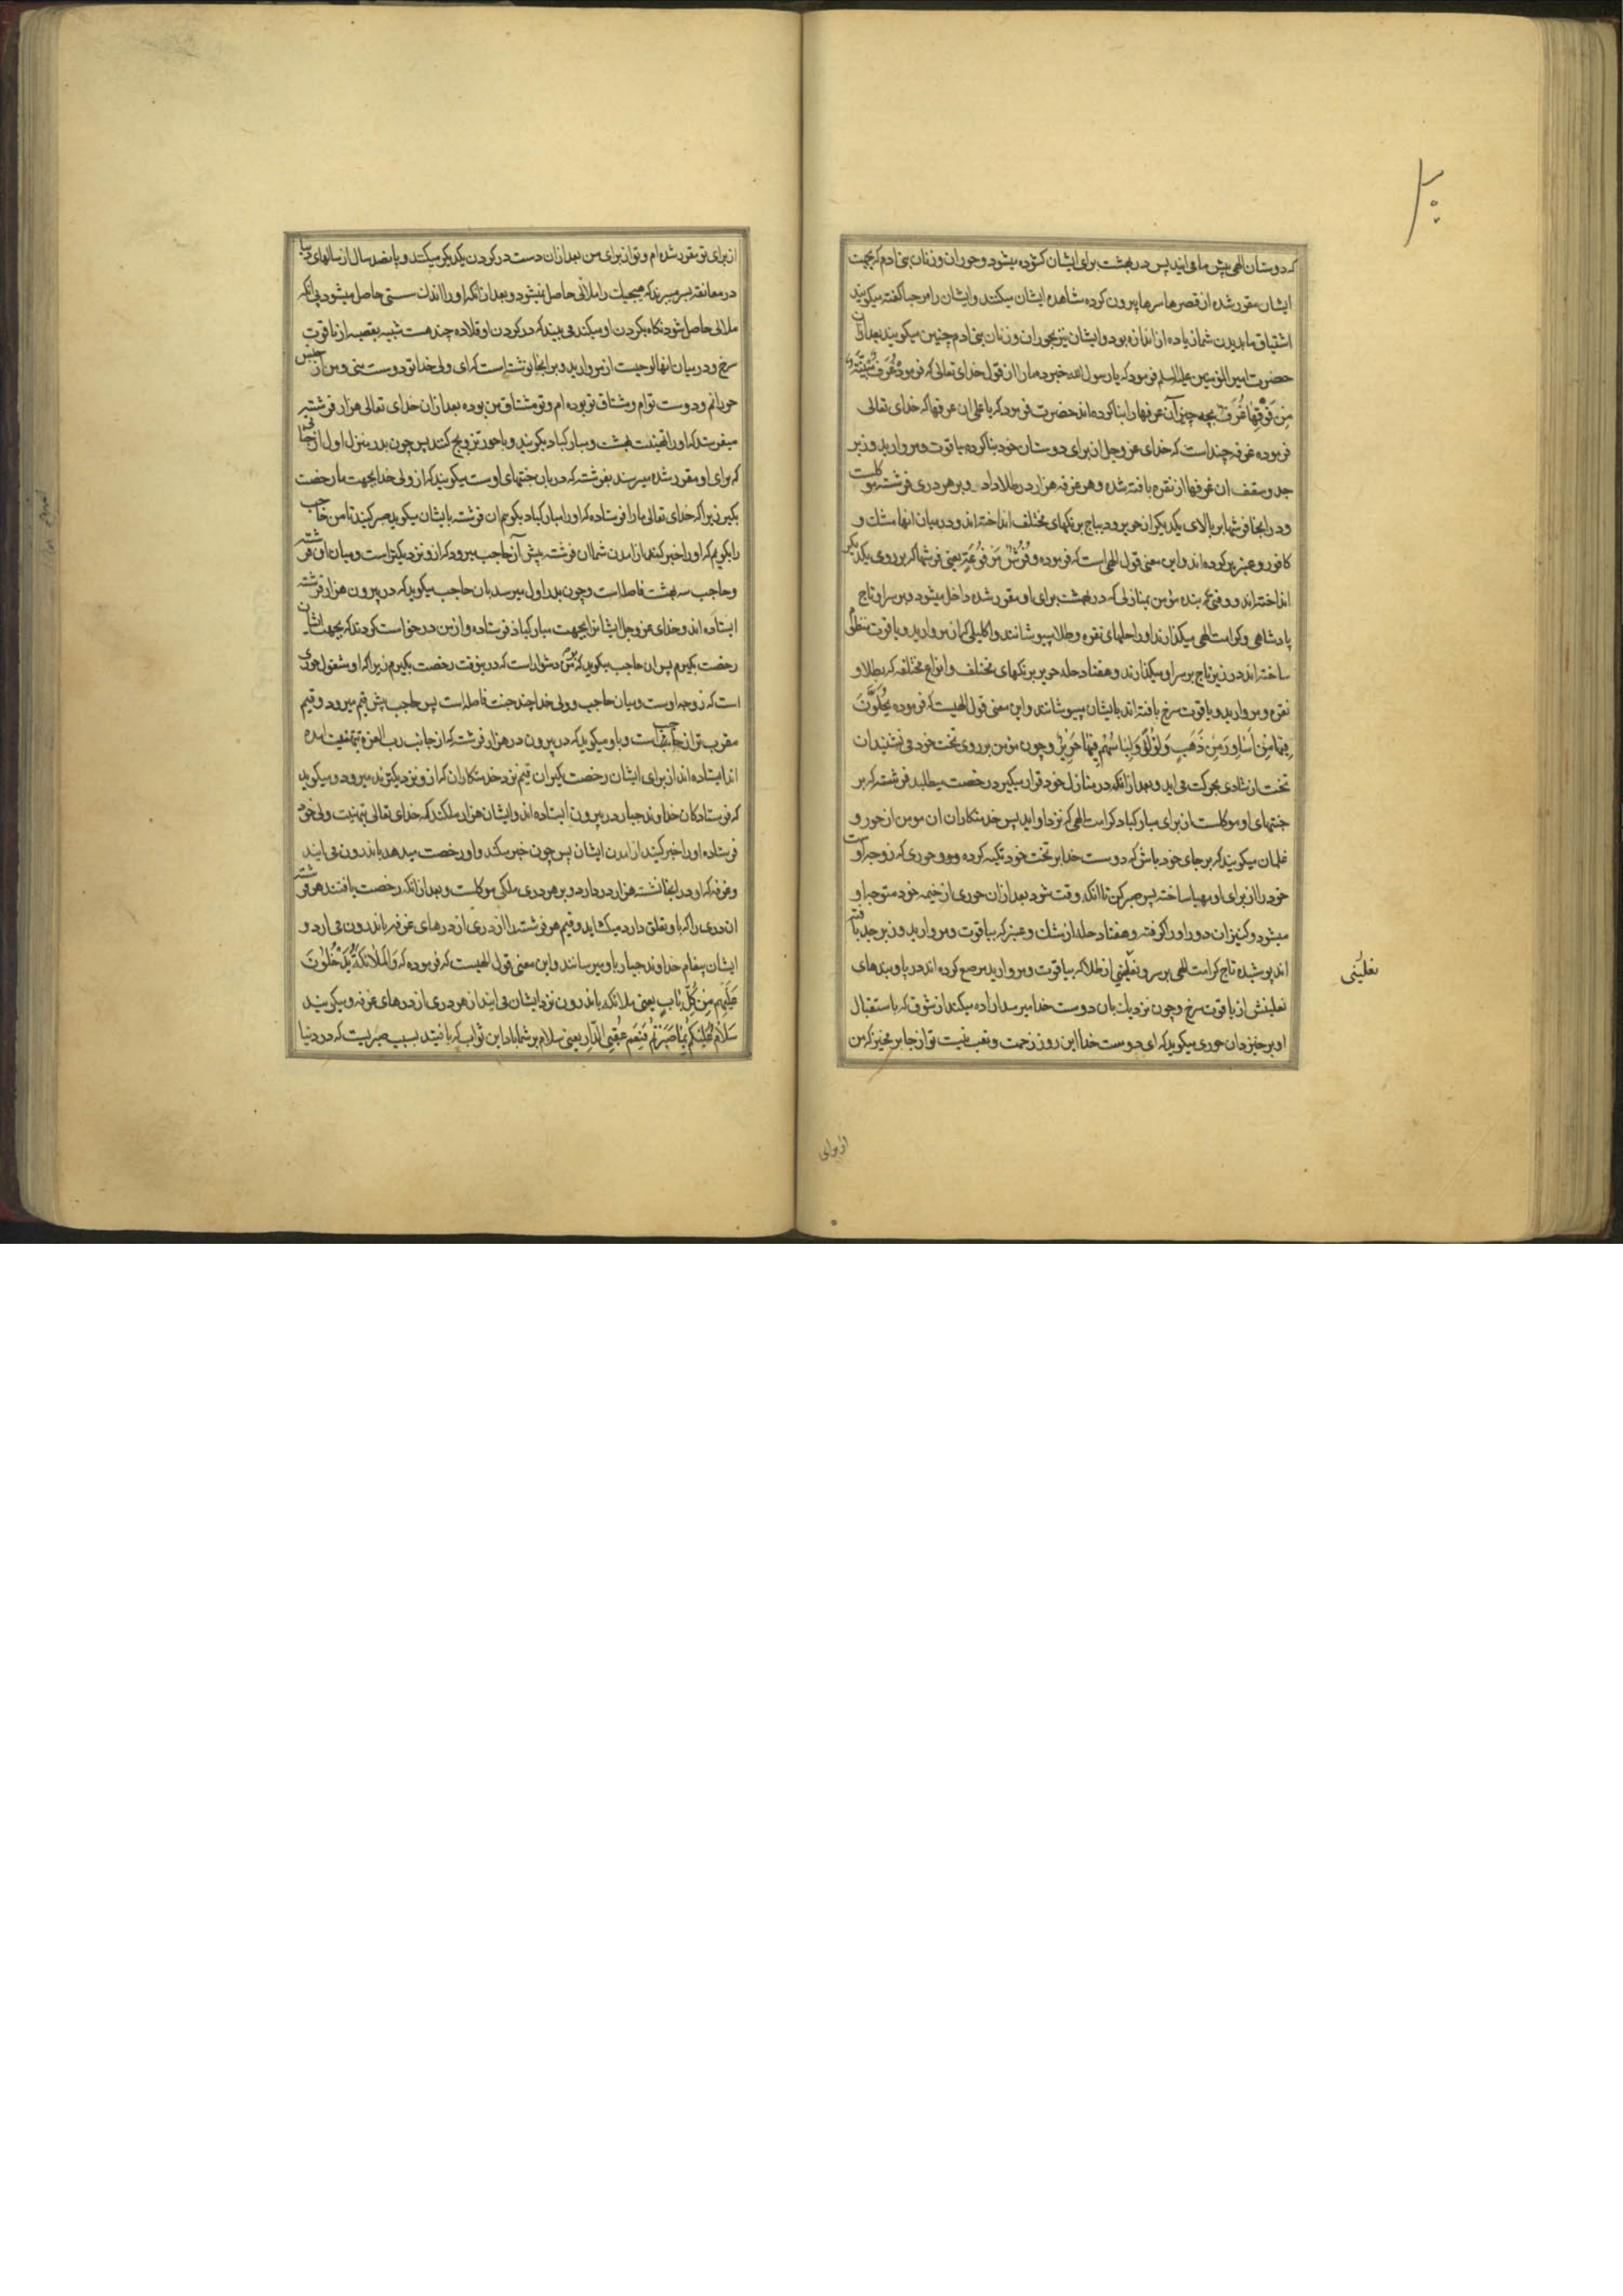 ۲۰
که دوستان الهی پیش ما می ایند پس در بهشت برای ایشان کشوده میشود و حوران و زنان بنی ادم که بجهت
ایشان مقرر شده از قصرها سرها بیرون کرده مشاهده ایشان میکنند و ایشان را مرحبا کفته میکویند
اشتیاق ما بدیدن شما زیاده از اندازه بود و ایشان نیز بحوران و زنان بنی ادم چنین میکویند بعد ازان
حضرت امیر المؤمنین علیه السلم فرمود که یا رسول الله خبر ده مارا از قول خدای تعالی که فرموده غُرَفٌ مَبْنِیَّةٌ
مِن فَوْقِهَا غُرَفٌ بچه چیز آن غرفها را بنا کرده اند حضرت فرمود که یا علی ان غرفها که خدای تعالی
فرموده غرفه چند است که خدای عز و جل از برای دوستان خود بنا کرده بیاقوت و مروارید و زبر
جد و سقف ان غرفها از نقره بافته شده و هر غرفه هزار در طلا دارد و بر هر دری فرشته موکلست
و در انجا فرشها بر بالای یکدیکر از حریر و دیباج برنکهای مختلف انداخته اند و در میان انها مشک و
کافور و عنبر پر کرده اند و این معنی قول الهی است که فرموده وَفُرُشٍ مَرْفُوعَةٍ یعنی فرشها که بر روی یکدیکر
انداخته اند و وقتی که بنده مؤمن بمنازلی که در بهشت برای او مقرر شده داخل میشود بر سر او تاج
پادشاهی و کرامت الهی میکذارند و او را حلهای نقره و طلا میپوشانند و اکلیلی که از مروارید و یاقوت منظم
ساخته اند در زیر تاج بر سر او میکذارند و هفتاد حله حریر برنکهای مختلف و انواع مختلفه که بطلا و
نقره و مروارید و یاقوت سرخ بافته اند بایشان میپوشانند و این معنی قول الهیست که فرموده یُحَلَّوْنَ
فِیهَا مِنْ أَسَاوِرَ مِنْ ذَهَبٍ وَلُؤْلُؤًا وَلِبَاسُهُمْ فِیهَا حَرِیرٌ و چون مؤمن بر روی تخت خود می نشیند ان
تخت از شادی بحرکت می اید و بعد ازانکه در منازل خود قرار میکیرد رخصت میطلبد فرشته که بر
جنتهای او موکلست از برای مبارکباد کرامت الهی که نزد او اید پس خدمتکاران ان مومن از حور و
غلمان میکویند که بر جای خود باش که دوست خدا بر تخت خود تکیه کرده و حوری که زوجه اوست
خود را از برای او مهیا ساخته پس صبر کن تا انکه وقت شود بعد ازان حوری از خیمه خود متوجه او
میشود و کنیزان دور او را کرفته و هفتاد حله از مشک و عنبر که بیاقوت و مروارید و زبرجد بافته
اند پوشیده تاج کرامت الهی بر سر و نعلینی از طلا که بیاقوت و مروارید مرصع کرده اند در پا و بندهای
نعلینش از یاقوت سرخ و چون نزدیک بان دوست خدا میرسد اراده میکند از شوق که باستقبال
او بر خیزد ان حوری میکوید که ای دوست خدا این روز زحمت و تعب نیست تو از جا بر مخیز که من
نعلینی
از برای
از برای تو مقرر شده ام و تو از برای من بعد ازان دست در کردن یکدیکر میکنند و پانصد سال از سالهای دنیا
در معانقه بسر میبرند که هیچیک را ملالی حاصل نمیشود و بعد ازانکه او را اندک سستی حاصل میشود بی انکه
ملالی حاصل شود نکاه بکردن او میکند می بیند که در کردن او قلاده چند هست شبیه بقصبه از یاقوت
سرخ و در میان انها لوحیست از مروارید و بر انجا نوشته است که ای ولی خدا تو دوست منی و من از جنس
حورانم و دوست توام و مشتاق تو بوده ام و تو مشتاق من بوده بعد ازان خدای تعالی هزار فرشته
میفرستد که او را تهنیت بهشت و مبارکباد بکویند و با حور تزویج کنند پس چون بدر منزل اول از جنانی
که برای او مقرر شده میرسند بفرشته که دربان جنتهای اوست میکویند که از ولی خدا بجهت ما رخصت
بکیر زیرا که خدای تعالی ما را فرستاده که او را مبارکباد بکوییم ان فرشته بایشان میکوید صبر کنید تا من حاجب
را بکویم که او را خبر کند از امدن شما ان فرشته پیش آن حاجب میرود که ازو نزدیکتر است و میان ان فرشته
و حاجب سه بهشت فاصله است و چون بدر اول میرسد بان حاجب میکوید که در بیرون هزار فرشته
ایستاده اند و خدای عز و جل ایشانرا بجهت مبارکباد فرستاده و از من درخواست کردند که بجهت ایشان
رخصت بکیرم پس ان حاجب میکوید که بر من دشوار است که درینوقت رخصت بکیرم زیرا که او مشغول حوری
است که زوجه اوست و میان حاجب و ولی خدا چند جنت فاصله است پس حاجب پیش قیم میرود و قیم
مقرب تر از حاجب است و باو میکوید که در بیرون در هزار فرشته که از جانب رب العزه بتهنیت امده
اند ایستاده اند از برای ایشان رخصت بکیر ان قیم نزد خدمتکاران که ازو نزدیکترند میرود و میکوید
که فرستادکان خداوند جبار در بیرون ایستاده اند و ایشان هزار ملکند که خدای تعالی بتهنیت ولی خود
فرستاده او را خبر کنید از امدن ایشان پس چون خبر میکنند و او رخصت میدهد باندرون می ایند
و غرفه که او در انجا نشسته هزار در دارد و بر هر دری ملکی موکلست و بعد ازانکه رخصت یافتند هر فرشته
ان دری را که باو تعلق دارد میکشاید و قیم هر فرشته را از دری از درهای غرفه باندرون می ارد و
ایشان پیغام خداوند جبار باو میرسانند و این معنی قول الهیست که فرموده که وَالْمَلَائِکَةُ یَدْخُلُونَ
عَلَیْهِم مِن کُلِّ بَابٍ یعنی ملائکه باندرون نزد ایشان می ایند از هر دری از درهای غرفه و میکویند
سَلَامٌ عَلَیْکُمْ بِمَا صَبَرْتُمْ فَنِعْمَ عُقْبَی الدَّارِ یعنی سلام بر شما باد این ثواب که یافتید بسبب صبریست که در دنیا